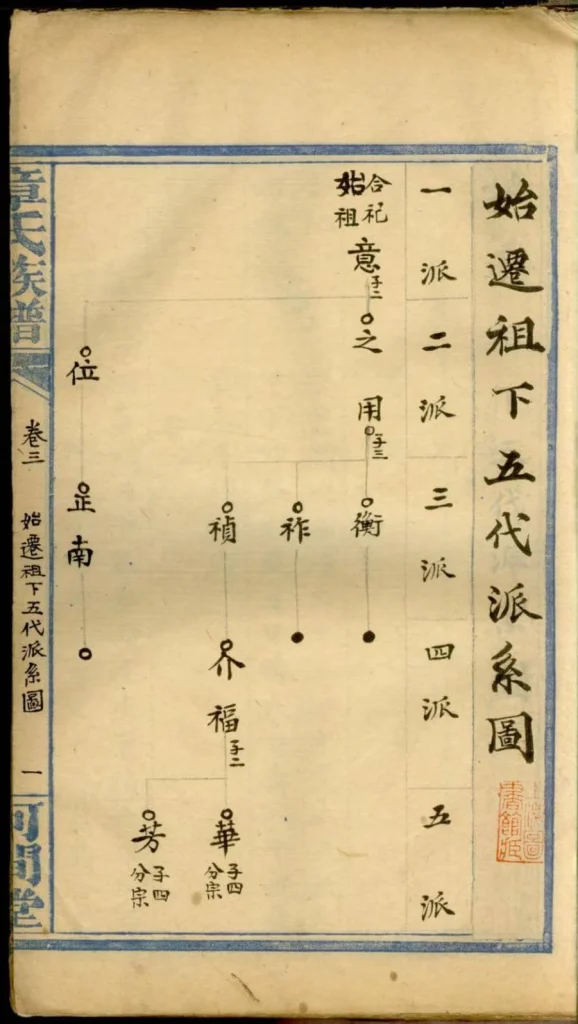 始遷祖下五代派系圖
一派
二派
三派
四派
五派
合祀
始祖
意
子二
之用
子三
衡
祚
禎
介福
子二
華
子四
分宗
芳
子四
分宗
位
正南
章氏族譜
卷三
始遷祖下五代派系圖
一
河間堂